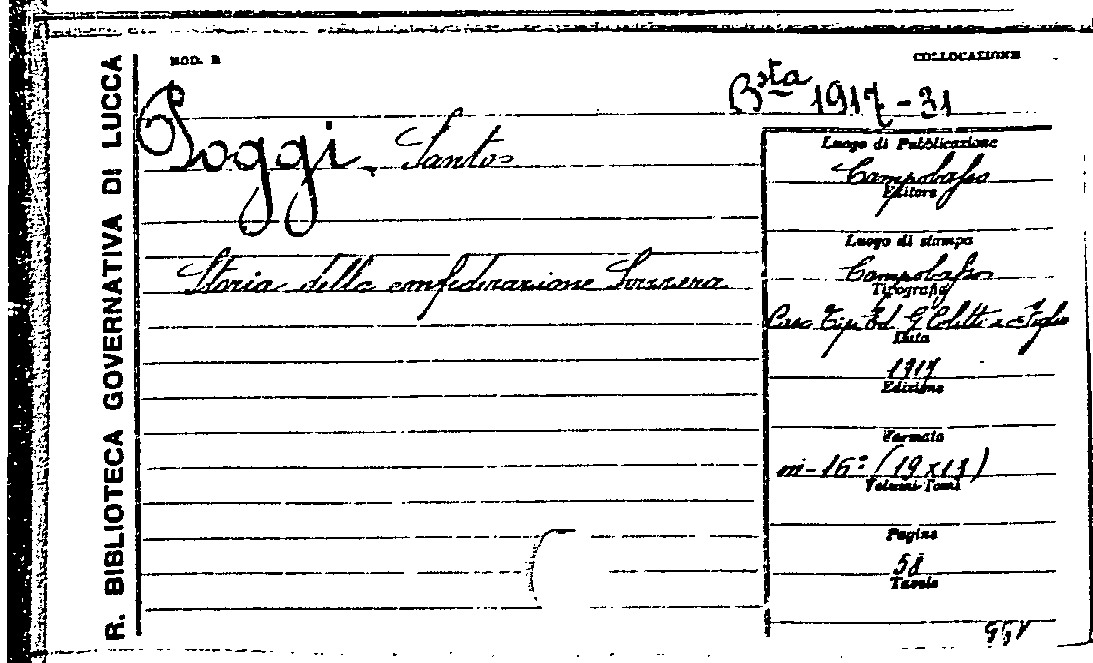 R. BIBLIOTECA GOVERNATIVA DI LUCCA
MOD. B
COLLOCAZIONE
Bsta 1917-31
Poggi, Santos
Storia della confederazione Svizzera
Luogo di Pubblicazione
Campobasso
Editore
Luogo di stampa
Campobasso
Tipografia
Casa Tip. Ed. G. Colitti e Figlio
Data
1917
Edizione
Formato
in-16° (19x13)
Volumi-Tomi
Pagine
58
Tavole